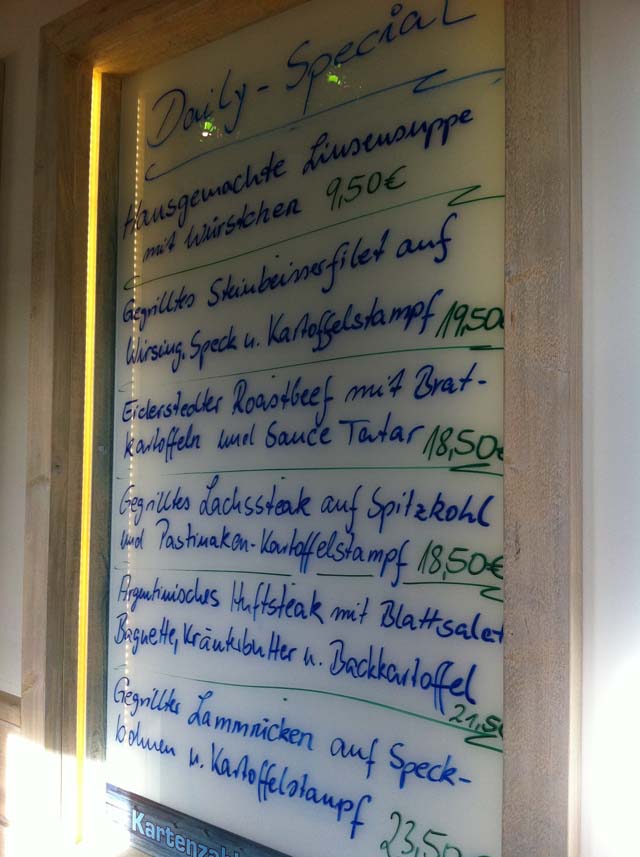 Daily-Special
Hausgemachte Linsensuppe
mit Würstchen 9,50€
Gegrilltes Steinbeisserfilet auf
Wirsing, Speck u. Kartoffelstampf 19,50
Eiderstedter Roastbeef mit Brat-
kartoffeln und Sauce Tatar 18,50€
Gegrilltes Lachssteak auf Spitzkohl
und Pastinaken-Kartoffelstampf 18,50€
Argentinisches Huftsteak mit Blattsalat
Baguette, Kräuterbutter u. Backkartoffel
21,50
Gegrillter Lammrücken auf Speck-
bohnen u. Kartoffelstampf
23,50